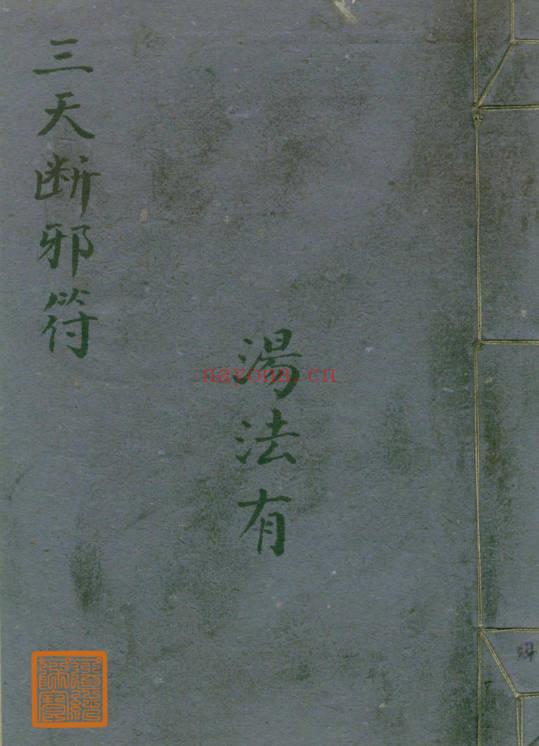 三天断邪符
湯法有
nayona.cn